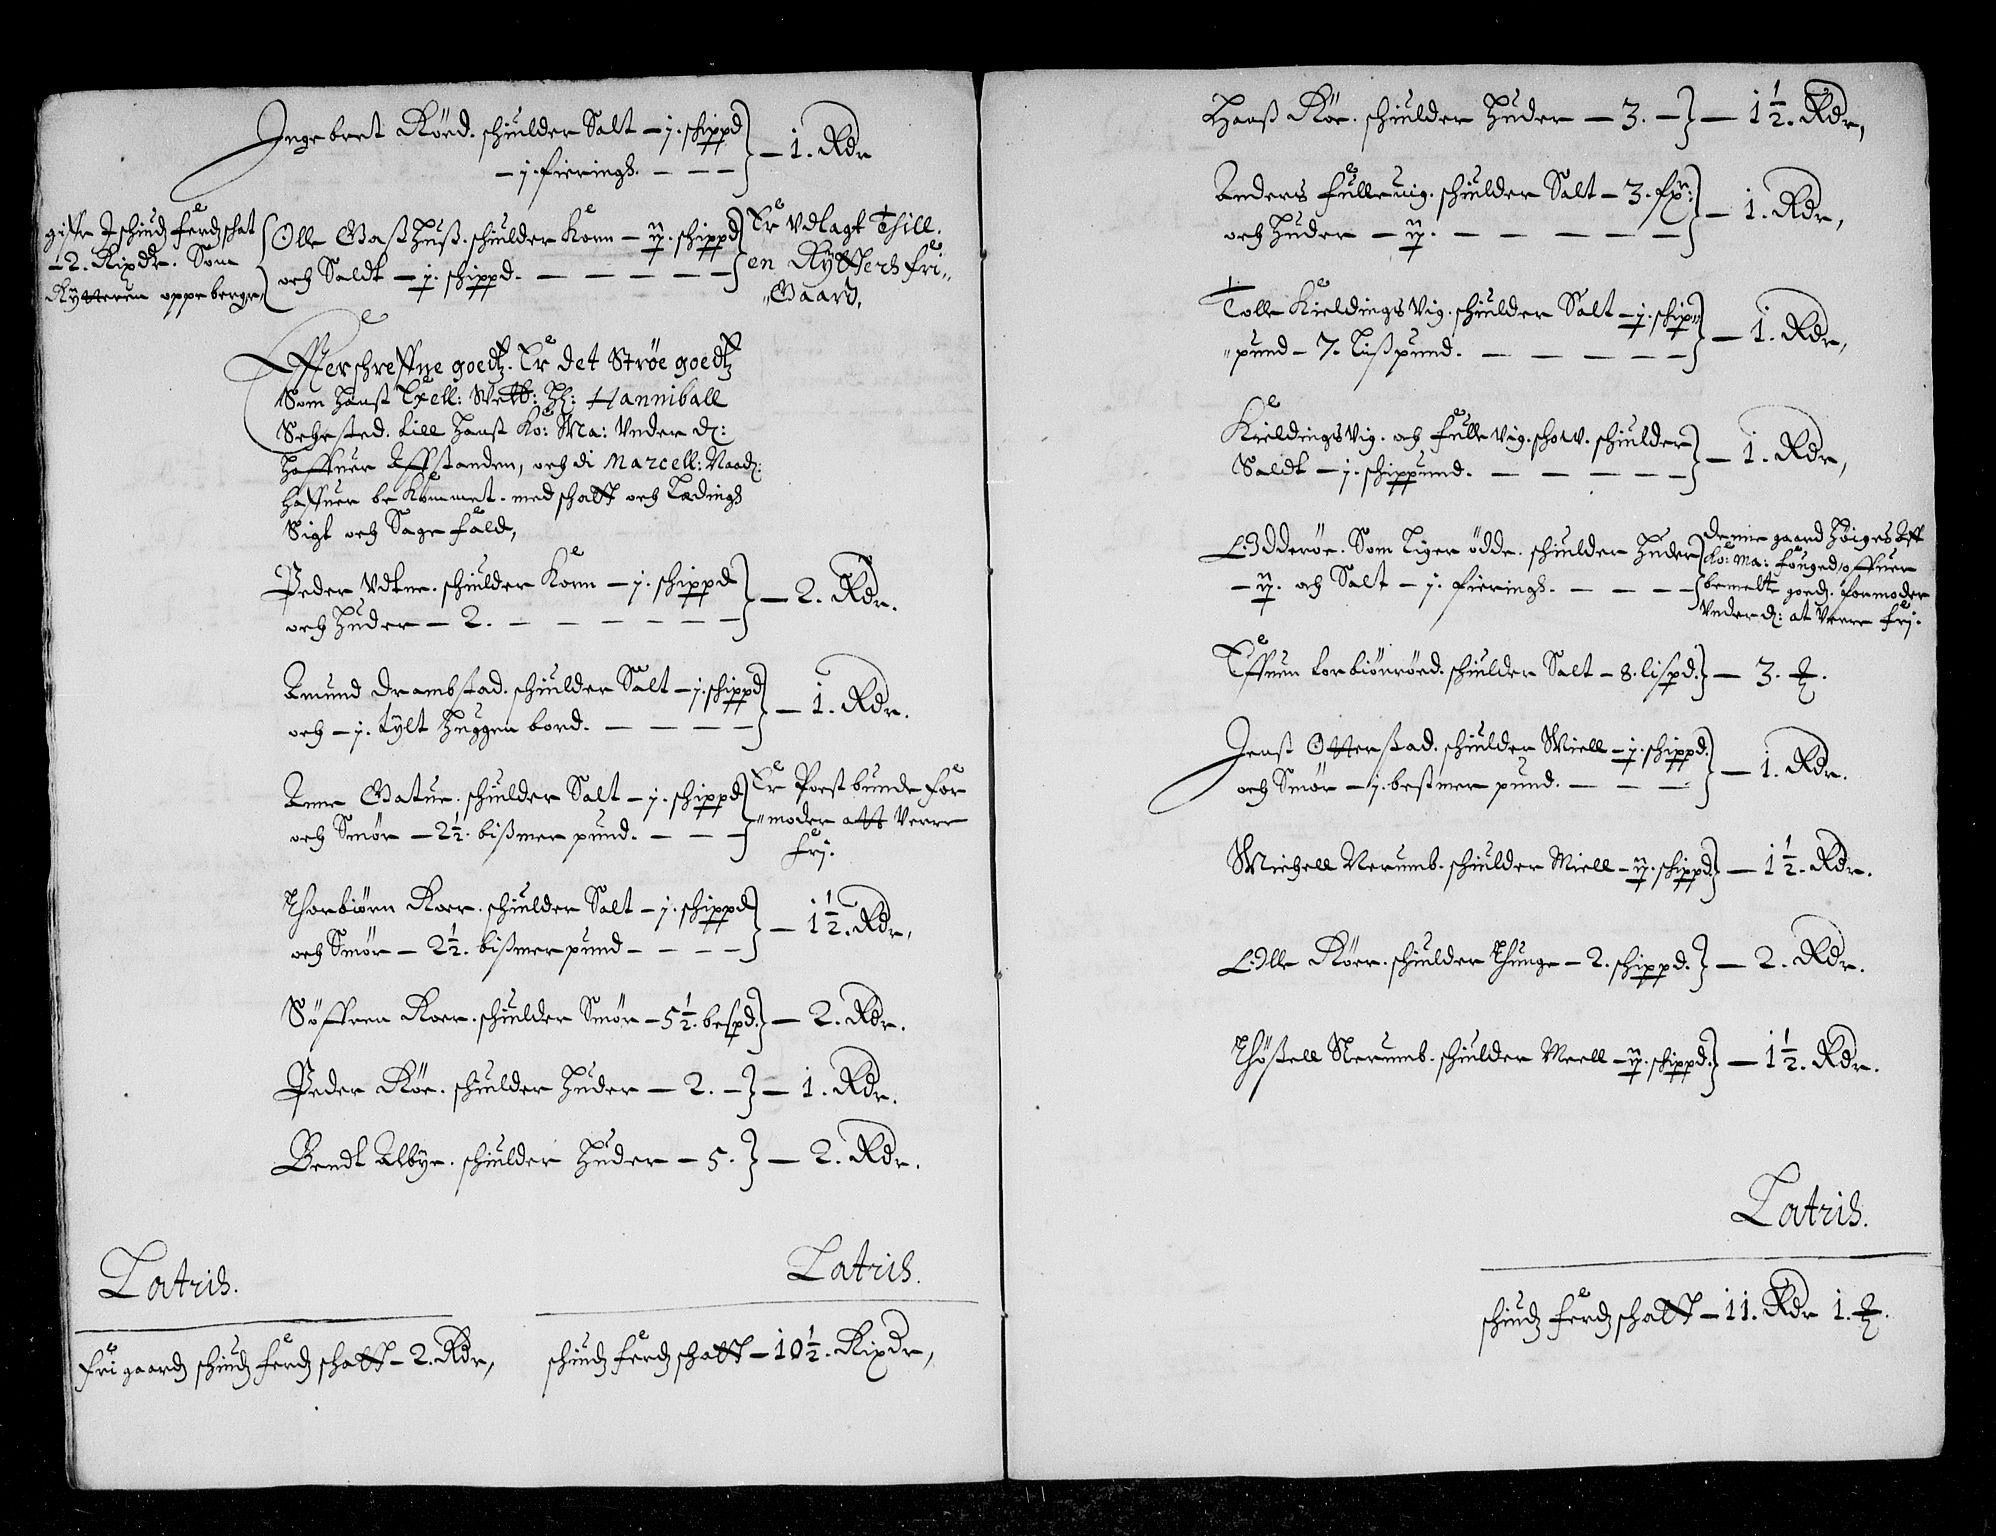 Ingebret Röed. schiulder Salt – j. schippd
– j. fierings. – – – } – 1. Rdr
giffr J schiudz ferdz schat
– 2. Rixdr. Som
Rytteren oppebergr,
Olle Gaßhuß. schiulder Korn – ij. schippd
och Saldt – j. schippd. – – – – –
Er Vdlagt Thill.
en Rytters fri„
„Gaard,
Efferschreffne goedtz. Er det Ströe goedtz
Som Hanß Exell: Welb: Hr: Hanniball
Sehested. till Hanß Ko: Ma: Vnder d:
Haffuer Affstanden, och di Marcell: Naadr:
haffuer be Kommet. med schatt och Ledings
Sigt och Sage fald,
Peder Vdtne. schiulder Korn – j. schippd
och Huder – 2. – – – – – – } – 2. Rdr.
Amund Drambstad. schiulder Salt – j. schippd
och – j. tylt Huggen bord. – – – – } – 1. Rdr.
Anne Gatue. schiulder Salt – j. schippd
och Smör – 2½. bißmer pund. – – –
Er Post bunde for
„moder att Verre
frj.
Thorbiörn Roer. schiulder Salt – j. schippd
och Smör – 2½. bißmer pund – – – – } – 1½. Rdr,
Söffren Roer. schiulder Smör – 5½. bespd. } – 2. Rdr.
Peder Röe. schiulder Huder – 2. – } – 1. Rdr.
Bendt Albye. schiulder Huder – 5. } – 2. Rdr.
Latris.
Latris.
fri gaardz schiudz ferdz schatt – 2. Rdr,
schiudz ferdz schatt – 10½. Rixdr,
Hanß Röe. schiulder Huder – 3. – } – 1½. Rdr,
Anders fulleuig. schiulder Salt – 3. fr:
och Huder – ij. – – – – – } – 1. Rdr,
Tolle Kieldings Vig. schiulder Salt – j. schip„
„pund – 7. Lißpund. – – – – – } – 1. Rdr,
Kieldings Vig. och fulle Vig. schow. schiulder
Saldt – j. schippund. – – – – – } – 1. Rdr,
Odderöe. Som Liger ödde. schiulder Huder
– ij. och Salt – j. fierings. – – – –
denne gaard Höiges Aff
Ko: Ma: fouged offuer
bemelte goedz. formoder
Vnder d: at Verre frj.
Effuen torbiörröed. schiulder Salt – 8. lispd. } – 3.
Jenß Otterstad. schiulder Miell – j. schippd.
och Smör – j. beßmer pund. – – – } – 1. Rdr.
Michell Nerumb. schiulder Miell – ij. schippd. } – 1½. Rdr.
Olle Röer. schiulder Thunge – 2. schippd. } – 2. Rdr.
Thößtell Nerumb. schiulder Meell – ij. schippd. } – 1½. Rdr.
Latris.
schiudz ferdz schatt – 11. Rdr 1.